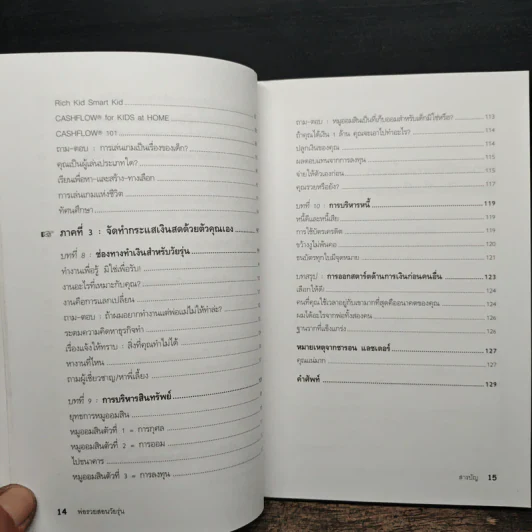 Rich Kid Smart Kid
CASHFLOW® for KIDS at HOME
CASHFLOW® 101
ถาม-ตอบ : การเล่นเกมเป็นเรื่องของเด็ก?
คุณเป็นผู้เล่นประเภทใด?
เรียนเพื่อหา-และสร้าง-ทางเลือก
การเล่นเกมแห่งชีวิต
ทัศนศึกษา
ภาคที่ 3 : จัดทำกระแสเงินสดด้วยตัวคุณเอง
บทที่ 8 : ช่องทางทำเงินสำหรับวัยรุ่น
ทำงานเพื่อรู้ มิใช่เพื่อรับ!
งานอะไรที่เหมาะกับคุณ?
งานคือการแลกเปลี่ยน
ถาม-ตอบ : ถ้าผมอยากทำงานแต่พ่อแม่ไม่ให้ทำล่ะ?
ระดมความคิดหาธุรกิจทำ
เรื่องแจ้งให้ทราบ : สิ่งที่คุณทำไม่ได้
หางานที่ไหน
ถามผู้เชี่ยวชาญ/หาพี่เลี้ยง
บทที่ 9 : การบริหารสินทรัพย์
ยุทธการหมูออมสิน
หมูออมสินตัวที่ 1 = การกุศล
หมูออมสินตัวที่ 2 = การออม
ไปธนาคาร
หมูออมสินตัวที่ 3 = การลงทุน
14 พ่อรวยสอนวัยรุ่น
ถาม-ตอบ : หมูออมสินเป็นที่เก็บออมสำหรับเด็กมิใช่หรือ? 113
ถ้าคุณได้เงิน 1 ล้าน คุณจะเอาไปทำอะไร? 114
ปลูกเงินของคุณ 114
ผลตอบแทนจากการลงทุน 115
จ่ายให้ตัวเองก่อน 115
คุณรวยหรือยัง? 117
บทที่ 10 : การบริหารหนี้ 119
หนี้ดีและหนี้เสีย 119
การใช้บัตรเครดิต 119
ขว้างงูไม่พ้นคอ 120
ธนบัตรทุกใบมีจุดหมาย 121
บทสรุป : การออกสตาร์ตด้านการเงินก่อนคนอื่น 123
เลือกให้ดี 124
คนที่คุณใช้เวลาอยู่กับเขามากที่สุดคืออนาคตของคุณ 124
ผมได้อะไรจากพ่อทั้งสองคน 126
ฐานรากที่แข็งแกร่ง 126
หมายเหตุจากชารอน แลชเตอร์ 127
คุณแน่มาก 127
คำศัพท์ 129
สารบัญ 15